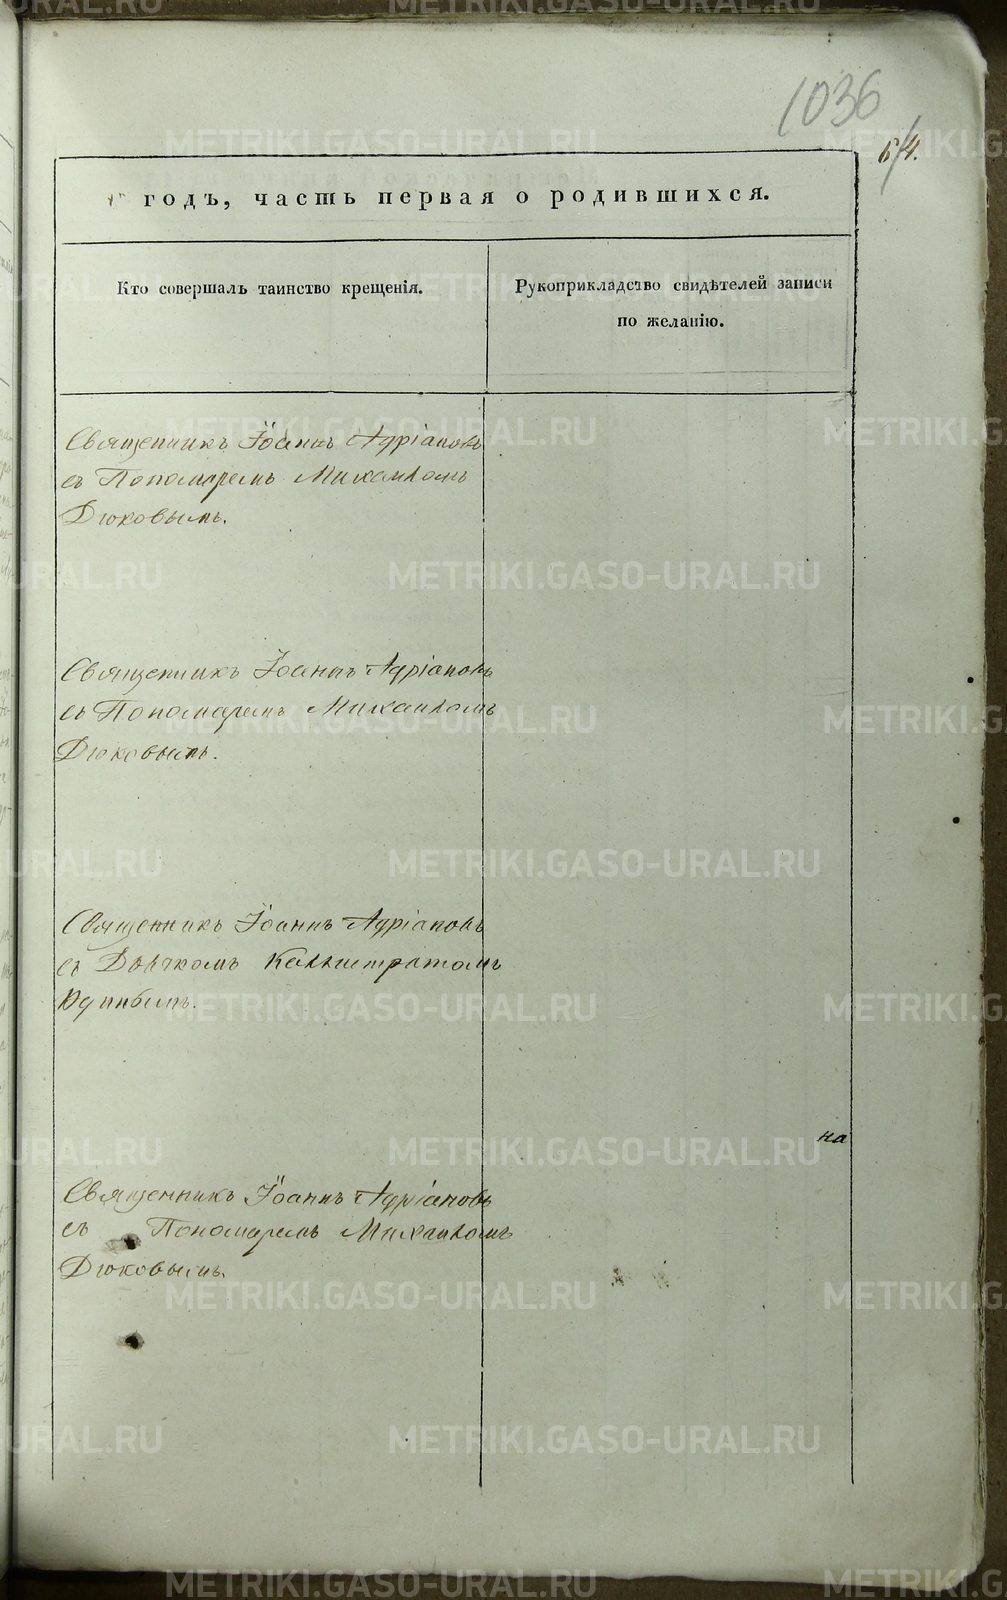 1036
64.
годъ, часть первая о родившихся.
Кто совершалъ таинство крещенія.
Рукоприкладство свидѣтелей записи
по желанію.
Священникъ Іоаннъ Адріановъ
съ Пономаремъ Михаиломъ
Дюковымъ.
Священникъ Іоаннъ Адріановъ
съ Пономаремъ Михаиломъ
Дюковымъ.
Священникъ Іоаннъ Адріановъ
съ Дьячкомъ Каллистратомъ
на
Священникъ Іоаннъ Адріановъ
съ Пономаремъ Михаиломъ
Дюковымъ.
METRIKI.GASO-URAL.RU